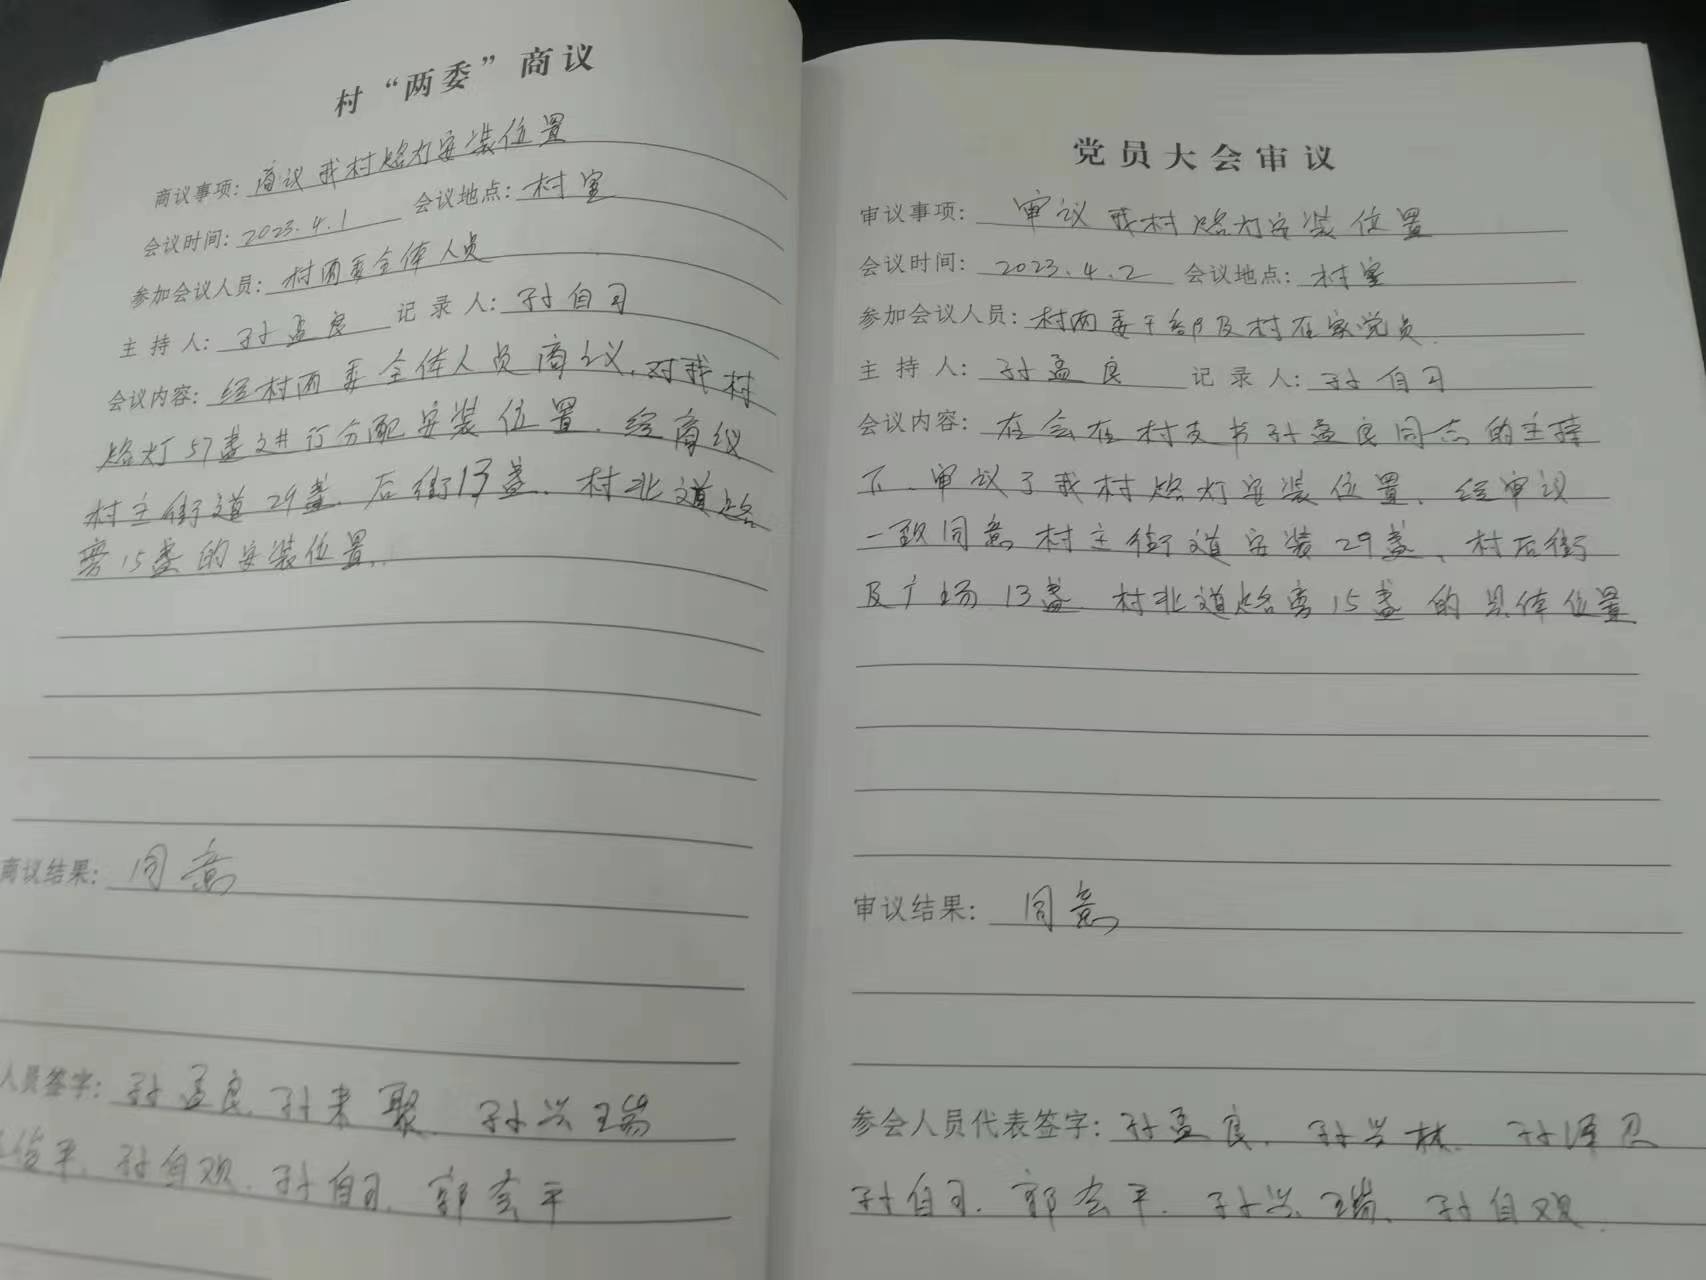 村“两委”商议
商议事项：商议我村路灯安装位置
会议时间：2023.4.1 会议地点：村室
参加会议人员：村两委全体人员
主持人：孙孟良 记录人：孙自习
会议内容：经村两委全体人员商议，对我村
路灯57盏进行分配安装位置，经商议
村主街道29盏、后街13盏、村北道路
旁15盏的安装位置。
商议结果：同意
人员签字：孙孟良、孙来聚、孙兴瑞
俊平、孙自观、孙自习、郭玄平
党员大会审议
审议事项：审议我村路灯安装位置
会议时间：2023.4.2 会议地点：村室
参加会议人员：村两委干部及村在家党员
主持人：孙孟良 记录人：孙自习
会议内容：在会在村支书孙孟良同志的主持
下、审议了我村路灯安装位置，经审议
一致同意村主街道安装29盏、村后街
及广场13盏 村北道路旁15盏的具体位置
审议结果：同意
参会人员代表签字：孙孟良、孙兴林、孙泽
孙自习、郭玄平、孙兴瑞、孙自观